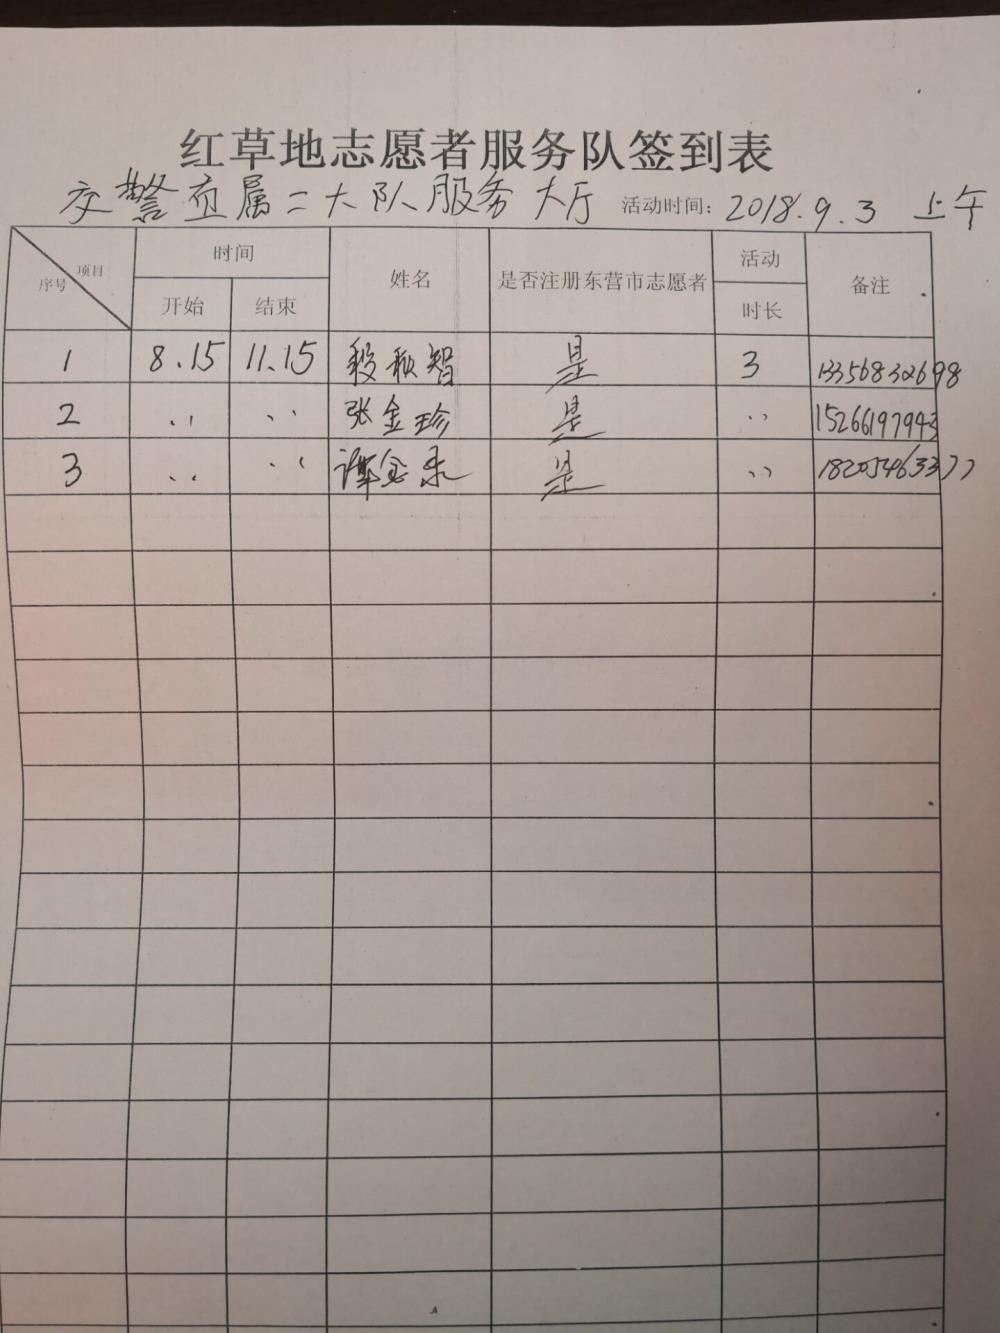 红草地志愿者服务队签到表
交警直属二大队服务大厅 活动时间: 2018.9.3 上午
项目 序号 时间 姓名 是否注册东营市志愿者 活动 备注
开始 结束 时长
1 8.15 11.15 段秋智 是 3 13356832698
2 〃 〃 张金珍 是 〃 15266197943
3 〃 〃 是 〃 18205463377